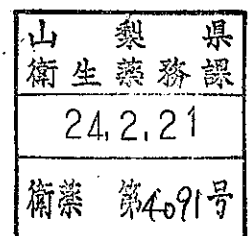 山梨県
衛生薬務課
24.2.21
衛薬 第4091号